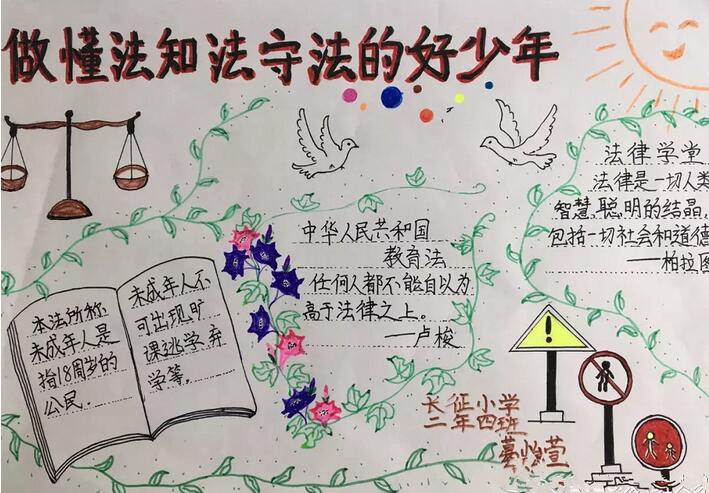 做懂法知法守法的好少年
法律学堂
法律是一切人类
智慧.聪明的结晶,
包括一切社会和道德
——柏拉图
中华人民共和国
教育法
任何人都不能自以为
高于法律之上。
——卢梭
本法所称
未成年人是
指18周岁的
公民.
未成年人不
可出现旷
课逃学.弃
学等。
长征小学
二年四班